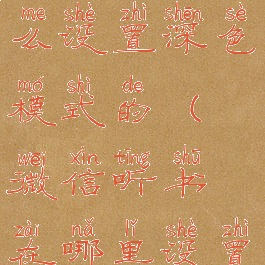 me shè zhì shēn sè
么设置深色
mó shì de
模式的（
wēi xìn tīng shū
微信听书
zài nǎ lǐ shè zhì
在哪里设置